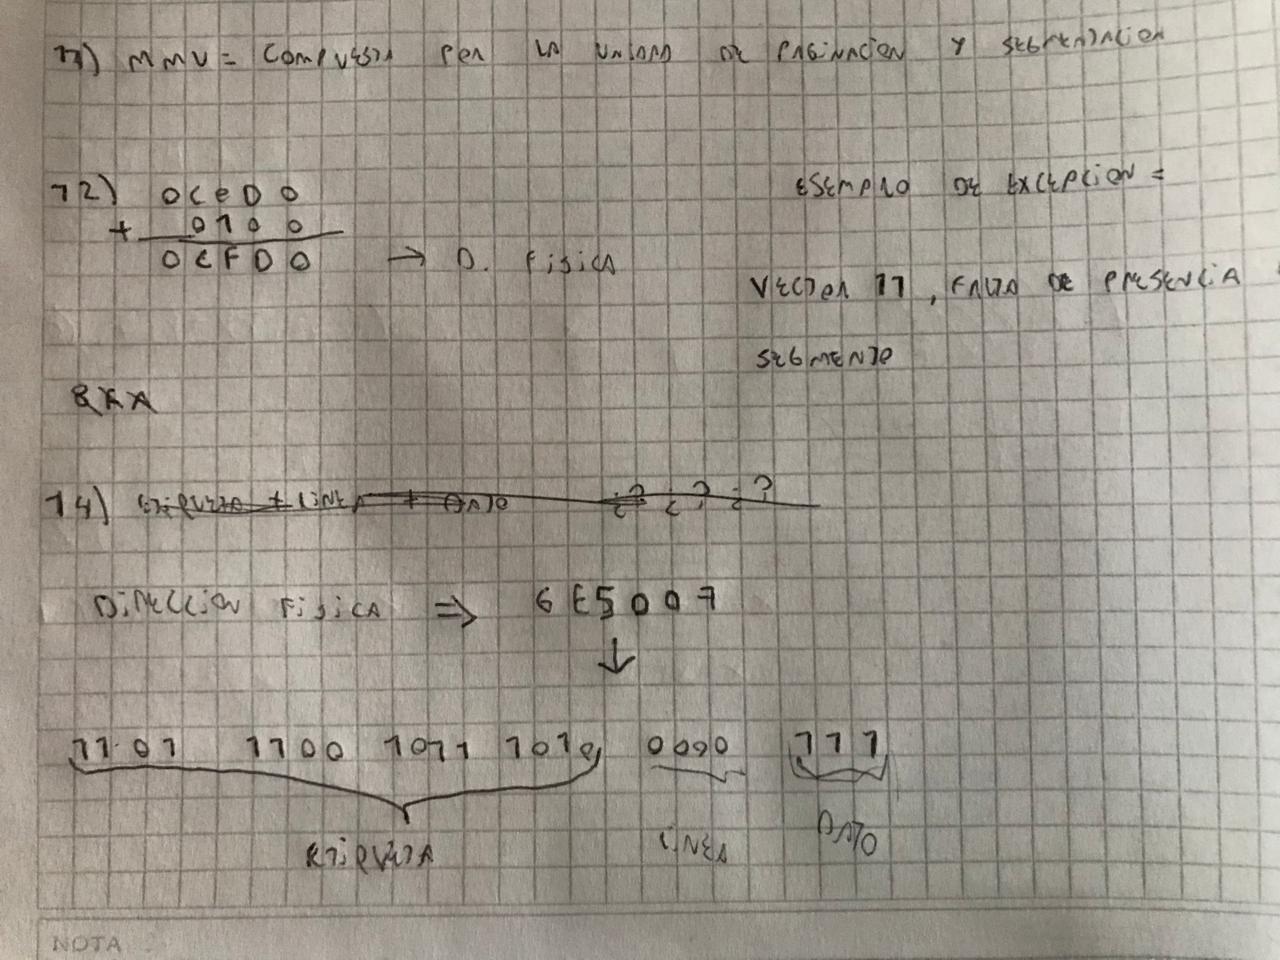 11) MMU = COMPUESTA POR LA UNIDAD DE PAGINACION Y SEGMENTACION
12) 0CED0
+ 0100
0CFD0 → D. FISICA
EJEMPLO DE EXCEPCION =
VECTOR 11, FALTA DE PRESENCIA
SEGMENTO
14) ETIQUETA + LINEA + DATO
DIRECCION FISICA ⇒ 6E5007
↓
1101 1100 1011 1010 0000 111
ETIQUETA LINEA
NOTA